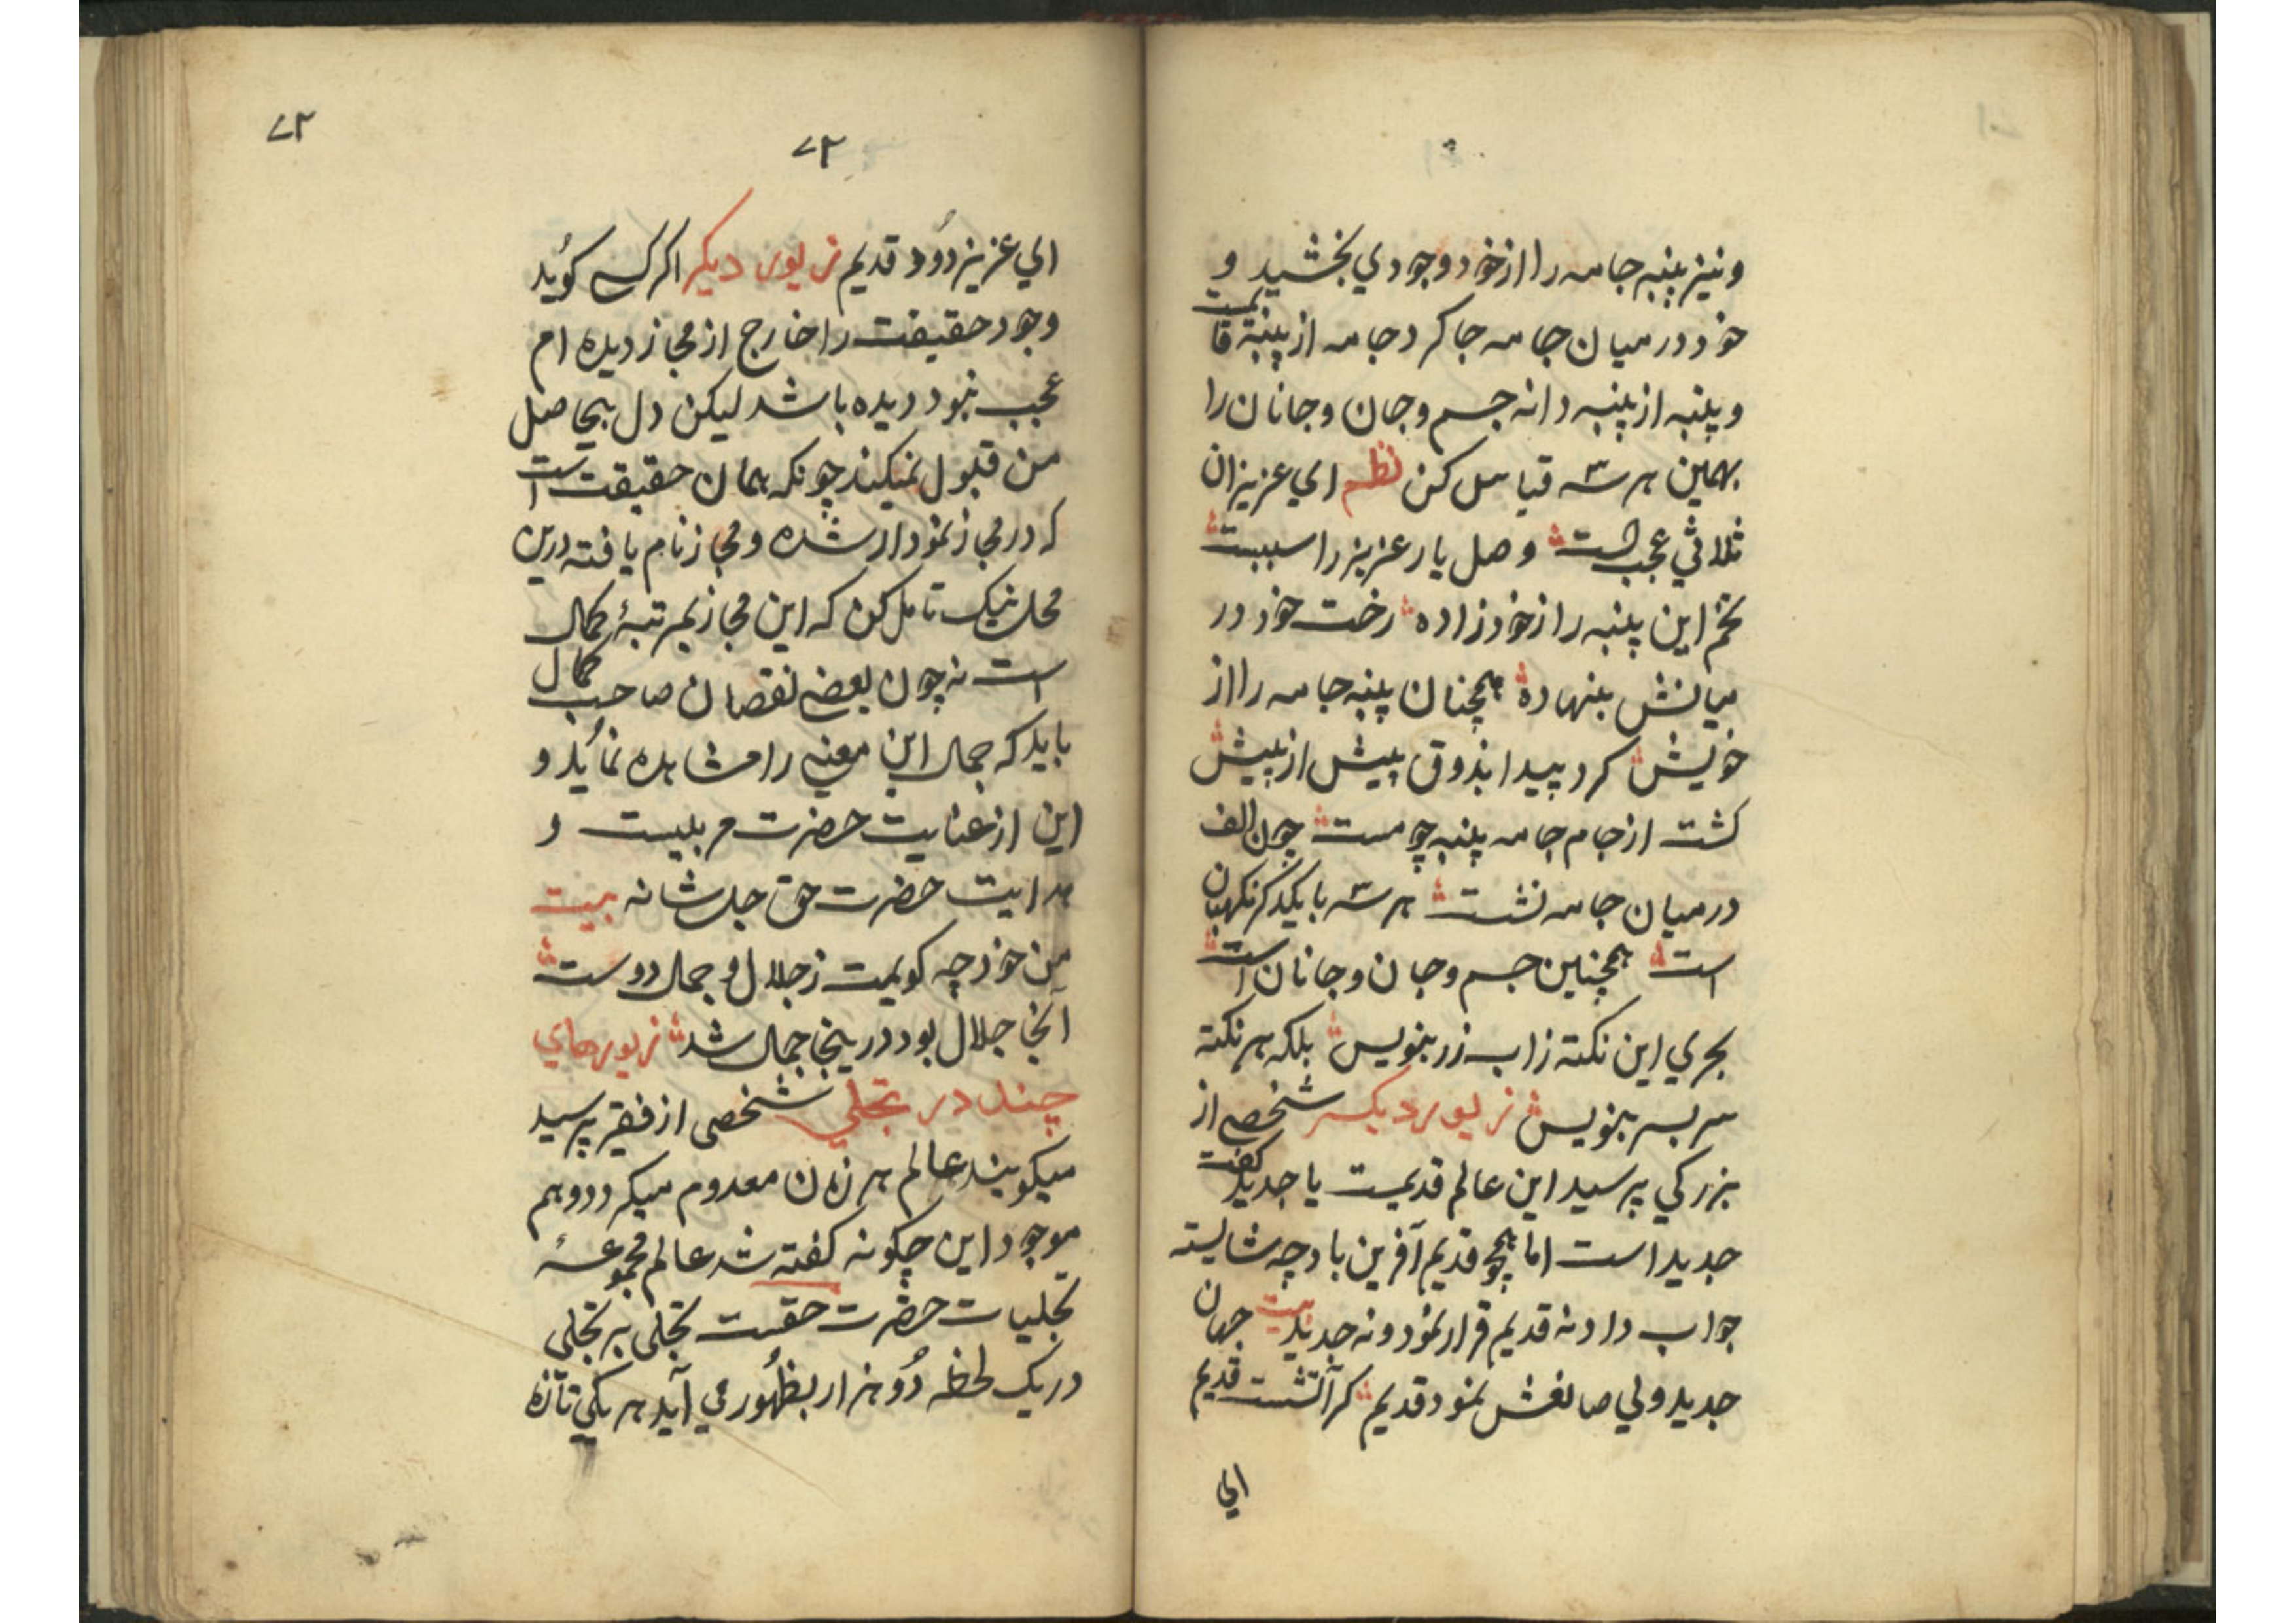 و نیز پنبه جامه را از خود وجودي بخشید و
خود درمیان جامه جا کرد جامه از پنبه قایمست
و پنبه از پنبه دانه جسم و جان و جانان را
بهمین هر سه قیاس کن نظم اي عزیز ان
ثلاثي عجب است وصل یار عزیز را سببست
تخم این پنبه را از خود زاده رخت خود در
میانش بنهاده همچنان پنبه جامه را از
خویش کرد پیدا بذوق بیش از بیش
کشت از جام جامه پنبه چو مست چون الف
درمیان جامه نشست هر سه با یکدکر نکهبان
است همچنین جسم و جان و جانان است
بحري این نکته ز اب زر بنویس بلکه هر نکته
سر بسر بنویس زیور دیکر شخصي از
بزرکي پرسید این عالم قدیمست یا جدید کفت
جدید است اما همچو قدیم آفرین باد چه شایسته
جواب داد نه قدیم قرار نمود و نه جدید بیت جهان
جدید ولي صانعش نمود قدیم کر آتشست قدیم
اي
۷۲
۷۲
اي عزیز دُود قدیم زیور دیکر اکر کسے کوئید
وجود حقیقت را خارج از مجاز دیده ام
عجب نبود دیده باشد لیکن دل بیحاصل
من قبول نمیکند چونکه همان حقیقت است
که در مجاز نمودار شده و مجاز نام یافته درین
محل نیک تامل کن که این مجاز بمرتبهٔ کمال
است نه چون بعضے نقصان صاحب کمال
باید که جمال این معنے را مشاهده نمائید و
این از عنایت حضرت مربیست و
هدایت حضرت حق جل شانه بیت
من خود چه کویمت ز جلال و جمال دوست
آنجا جلال بود درینجا جمال شد زیورهاي
چند در تجلي شخصی از فقیر پرسید
میکویند عالم هر زمان معدوم میکردد و هم
موجود این چکونه کفته شد عالم مجموعهٔ
تجلیات حضرت حقست تجلی بر تجلی
در یک لحظه دُو هزار بظُهُور مي آید هر یکي تازه